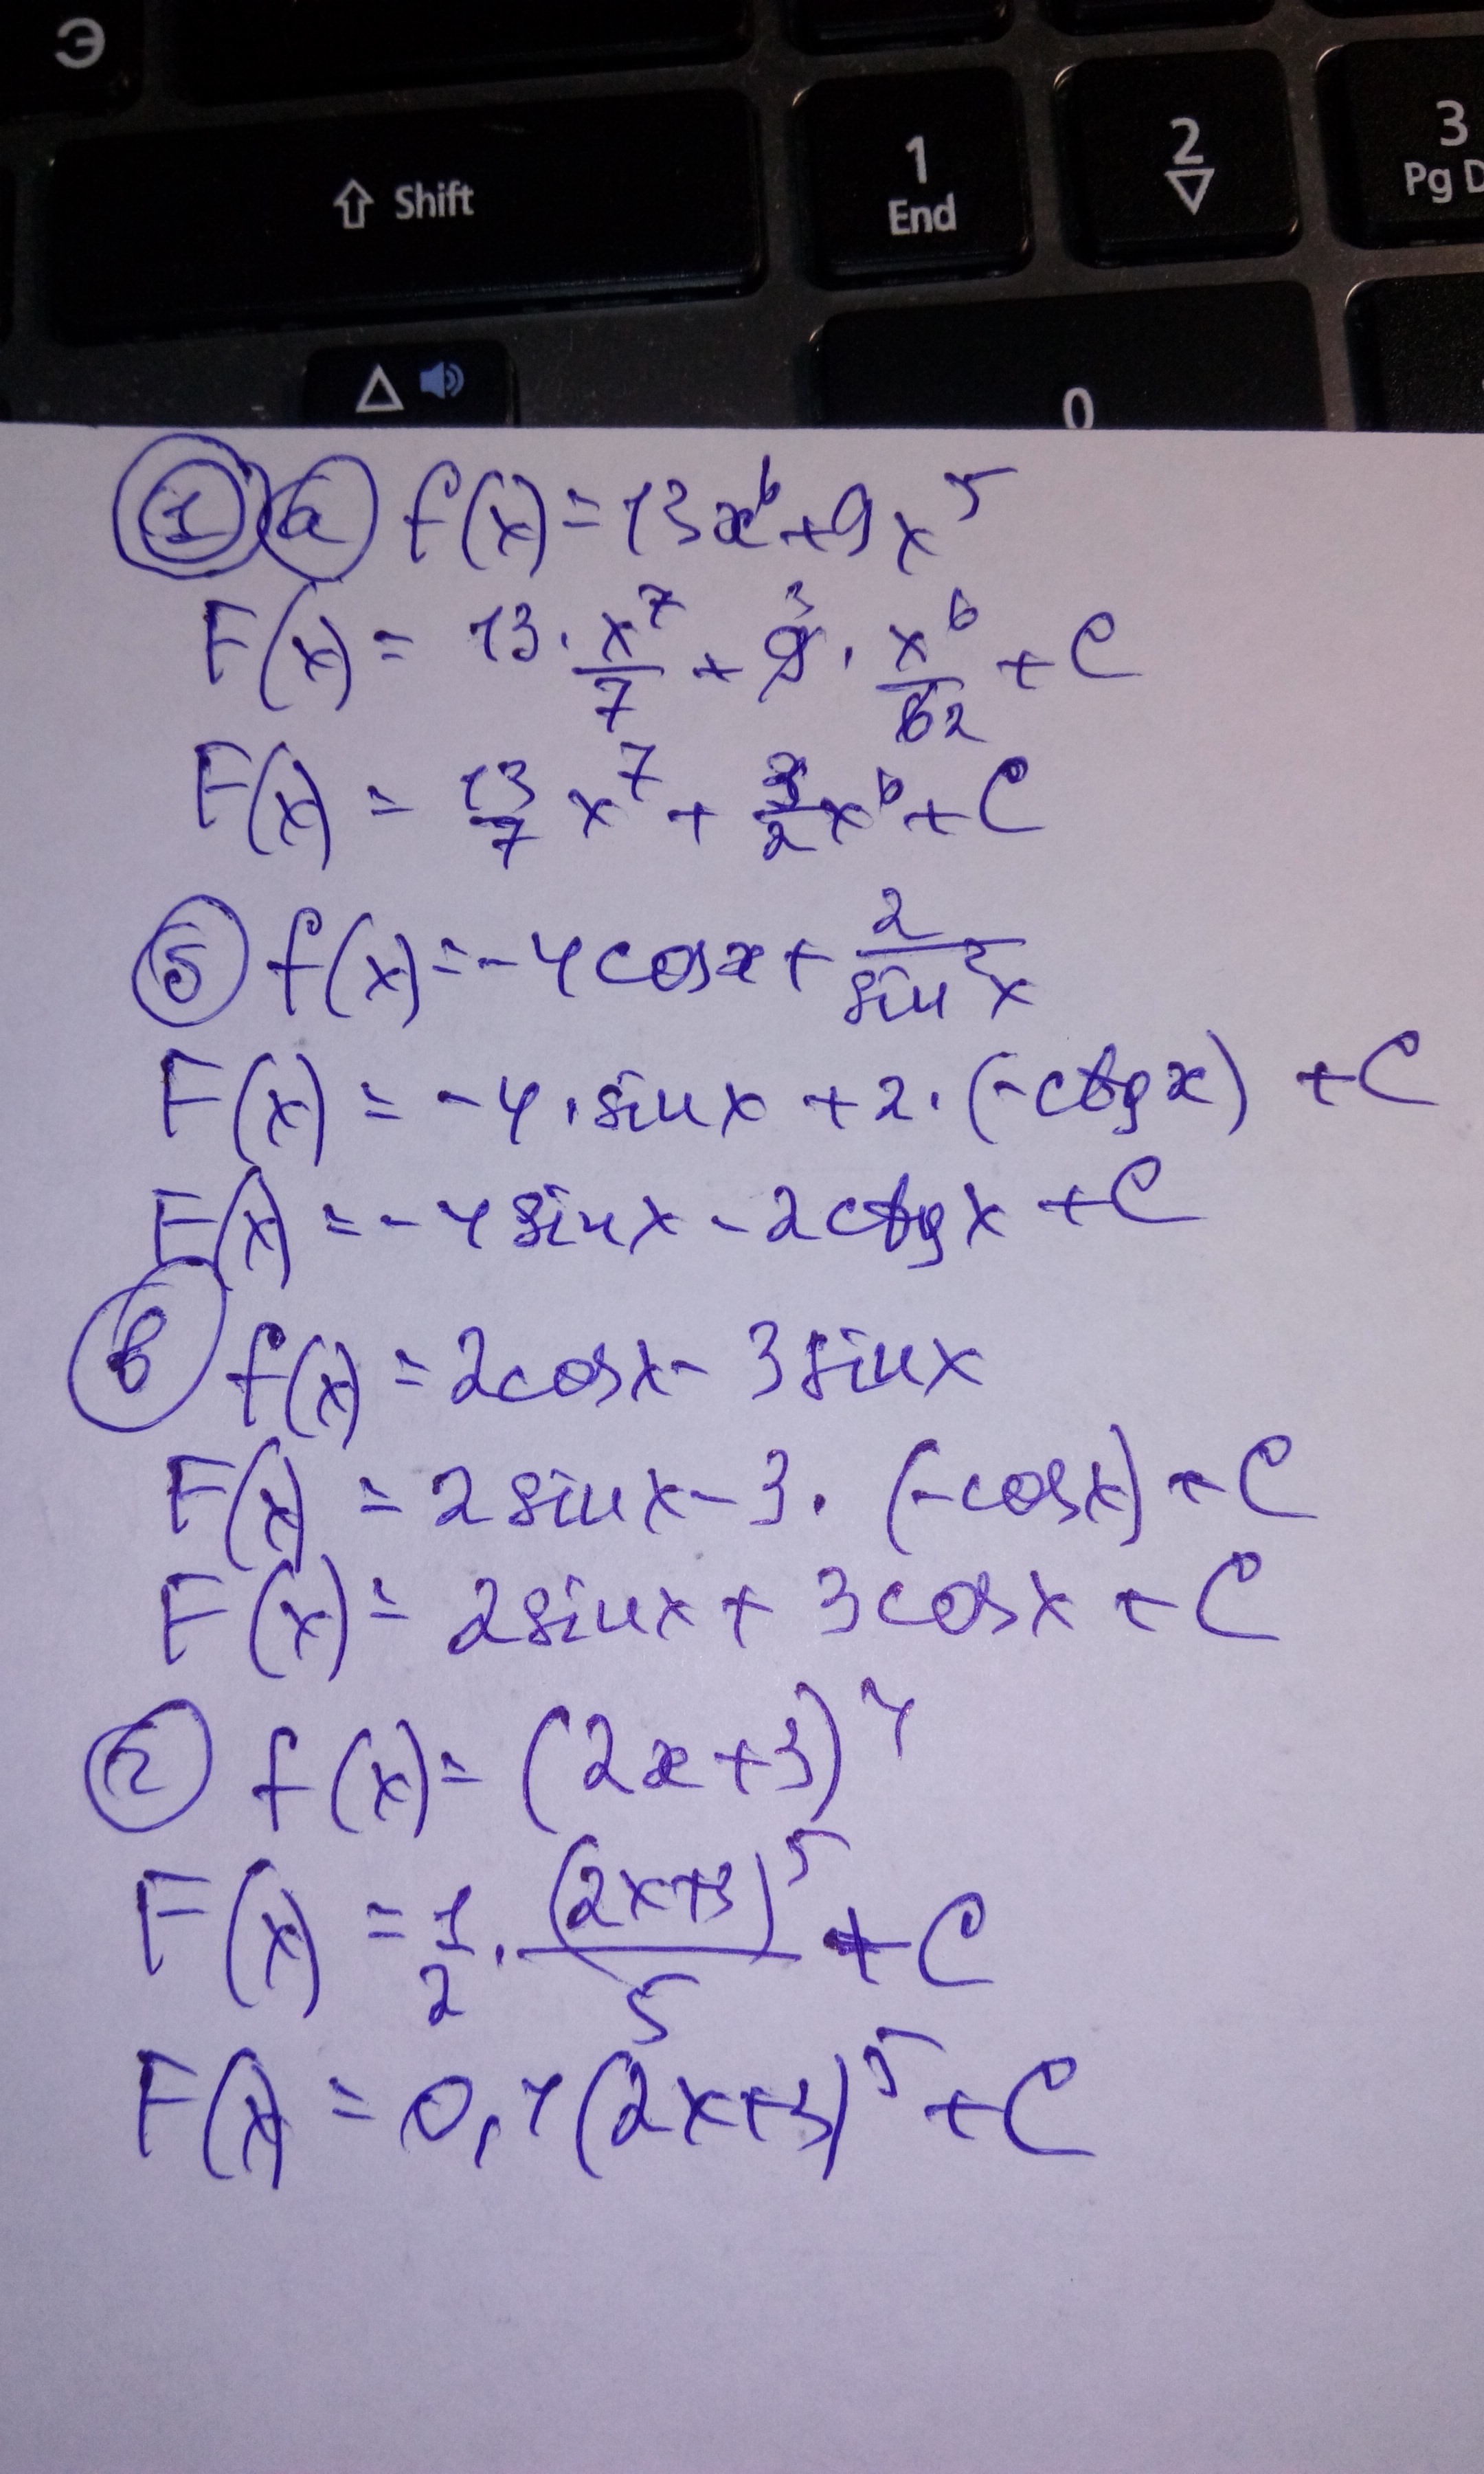 Э
⇧ Shift
1
End
2
▽
3
Pg D
△
0
1 а f(x) = 13x⁶ + 9x⁵
F(x) = 13 · x⁷/7 + 9 3 · x⁶/6 2 + C
F(x) = 13/7 x⁷ + 3/2 x⁶ + C
б f(x) = -4cosx + 2/sin²x
F(x) = -4 · sinx + 2 · (-ctgx) + C
F(x) = -4sinx - 2ctgx + C
в f(x) = 2cosx - 3sinx
F(x) = 2sinx - 3 · (-cosx) + C
F(x) = 2sinx + 3cosx + C
г f(x) = (2x+3)⁴
F(x) = 1/2 · (2x+3)⁵/5 + C
F(x) = 0,1(2x+3)⁵ + C